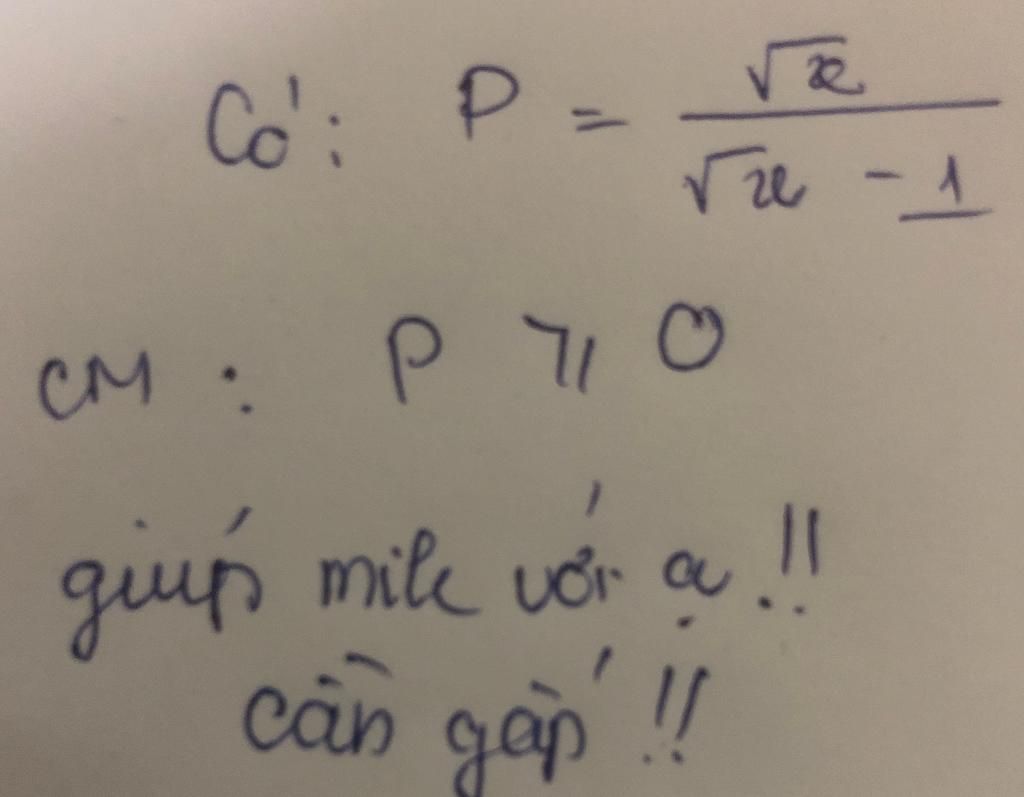 Có: P = √x / √x - 1
CM : P ≥ 0
giúp mik với ạ !!
cần gấp !!